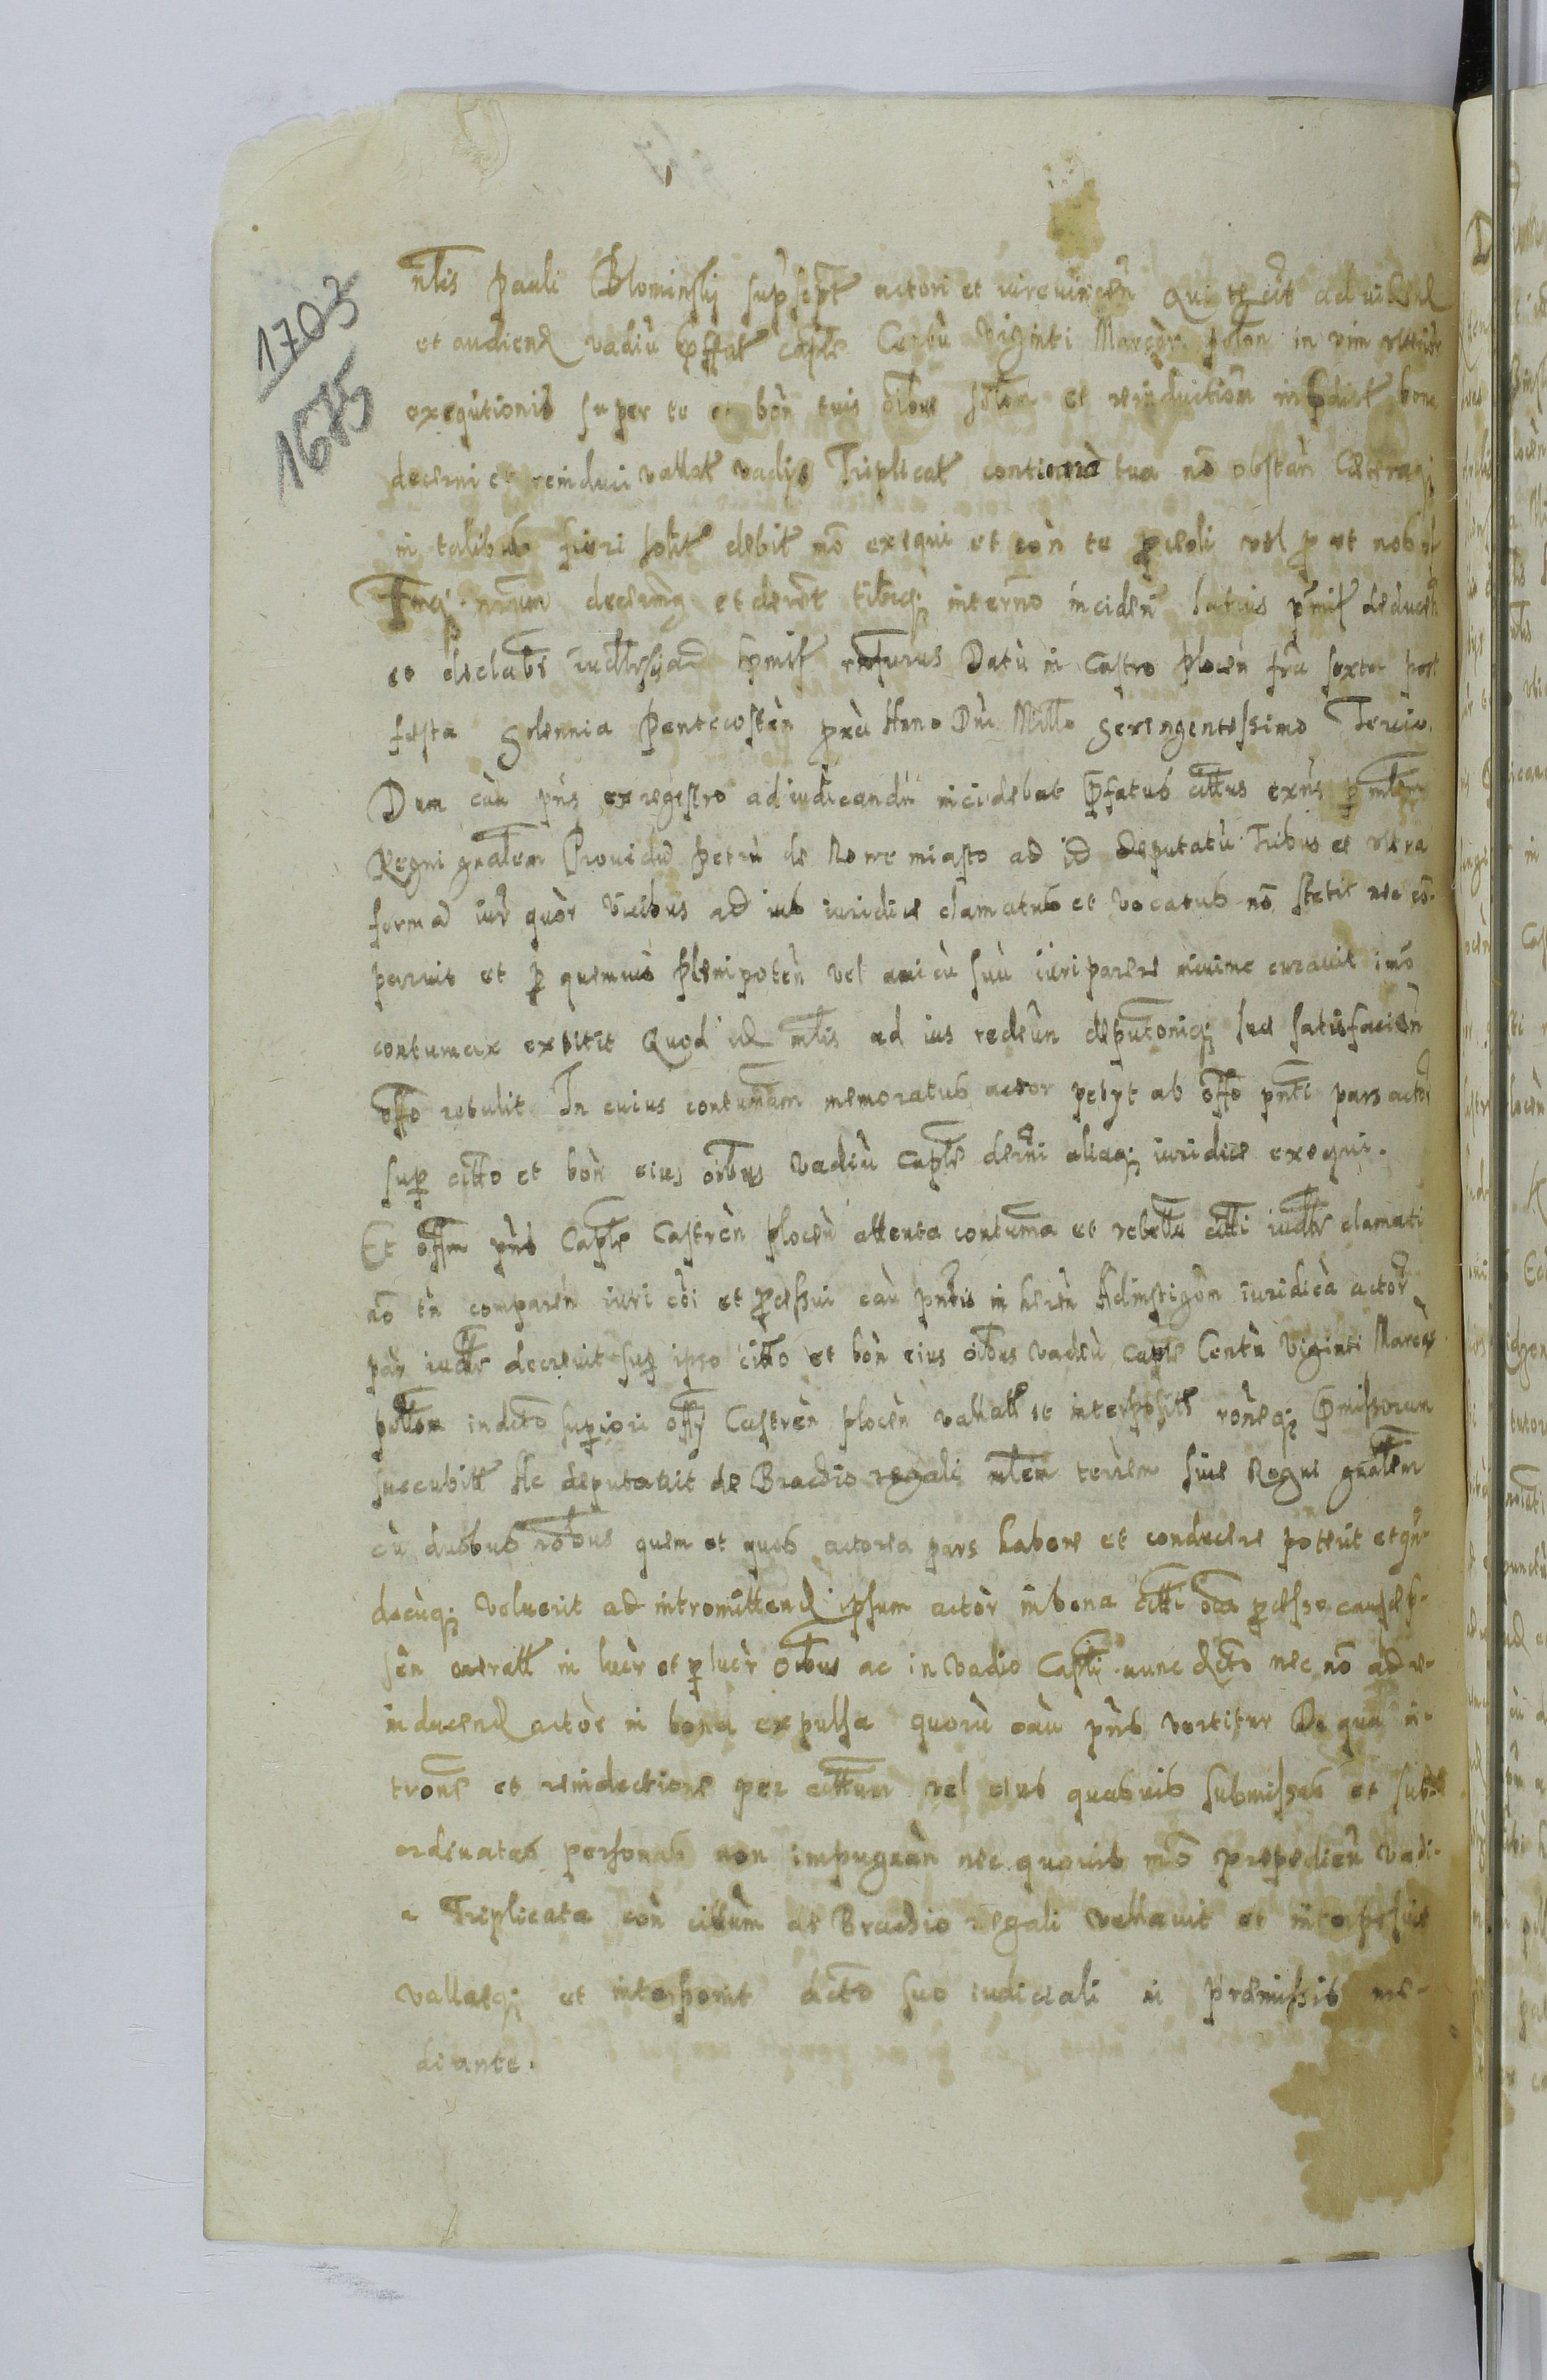 1703
1675
nlis Pauli Blominskij supscpt actori et vireuincen Qui te cit ad vidend
et audiend vadiu pffat caple Centu Viginti Marcar polon in vim ulterior
exequtionis super te et bon tuis oibus solon et reinductiom inpdict bona
decerni et reinduci vallat vadijs Triplicat contiona tua no obstan Ceteraq
in talibus fieri solit debit mo exequi et con te pcedi vel p ut nob
et deret tibiq interno inciden latius pmis deducen
et declabs pmis rnsurus Datu in Castro Plocen fra sexta post
festa Solennia Pentecosten pxa Anno Dni Millo Sexingentessimo Tercio.
Dum cau pns ex regestro ad iudicandu incidebat pfatus cittus exns p mlem
Regni gnalem Prouidu Petru de Nowe miasto ad id deputatu Tribus et ultra
forma iur quor vicibus ad ius iuridice clamatus et vocatus no stetit nec co-
paruit et p quemuis plenipoten vel amicu suu iuri parere minime curauit imo
contumax extitit Quod id mlis ad ius rediun deputoniq sue satisfacien
offo retulit In cuius contumam memoratus actor petijt ab offo pnti pars actor
sup citto et bon eius oibus Vadiu caple derni aliaq iuridice exequi.
Et offm pns Caple Castren Plocen attenta contuma et rebelle citti iudlr clamati
no tn comparen iuri coi et pcessui cau pntis in heren Ad instigon iuridica actor
par iudlr decreuit sup ipso citto et bon eius oibus vadiu caple Centu Viginti Marcar
pollon indcto supiori offij Castren Plocen vallatt et interposite roneq pmissorum
succubitt Ac deputauit de Brachio regali mlem terrem siue Regni gnalem
cu duobus nobus quem et quos actorea pars habere et conducere poterit et qn-
docuq voluerit ad intromittend ipsum actor in bona citti oia pcessu causae p-
sen oneratt in lucr et p lucr oibus ac in vadio Capli nunc dcto nec no ad re-
inducend actor in bona expulsa quoru cau pns vertitur De qua in-
trone et reinductione per cittum vel eius quasuis submissas et sub-
ordinatas personas non impugnan nec quouis mo prepedien Vadi-
a Triplicata con cittum de Brachio regali vallauit et interposuit
vallatq et interponit dcto suo iudiciali in praemissis me-
diante.